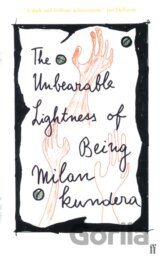 'A dark and brilliant achievement.' Ian McEwan
The
Unbearable
Lightness of
Being
Milan
Kundera
ff
Gorila